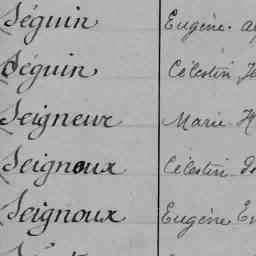 Séguin Eugène
Séguin Célestin
Seigneur Marie
Seignoux Célestin
Seignoux Eugène